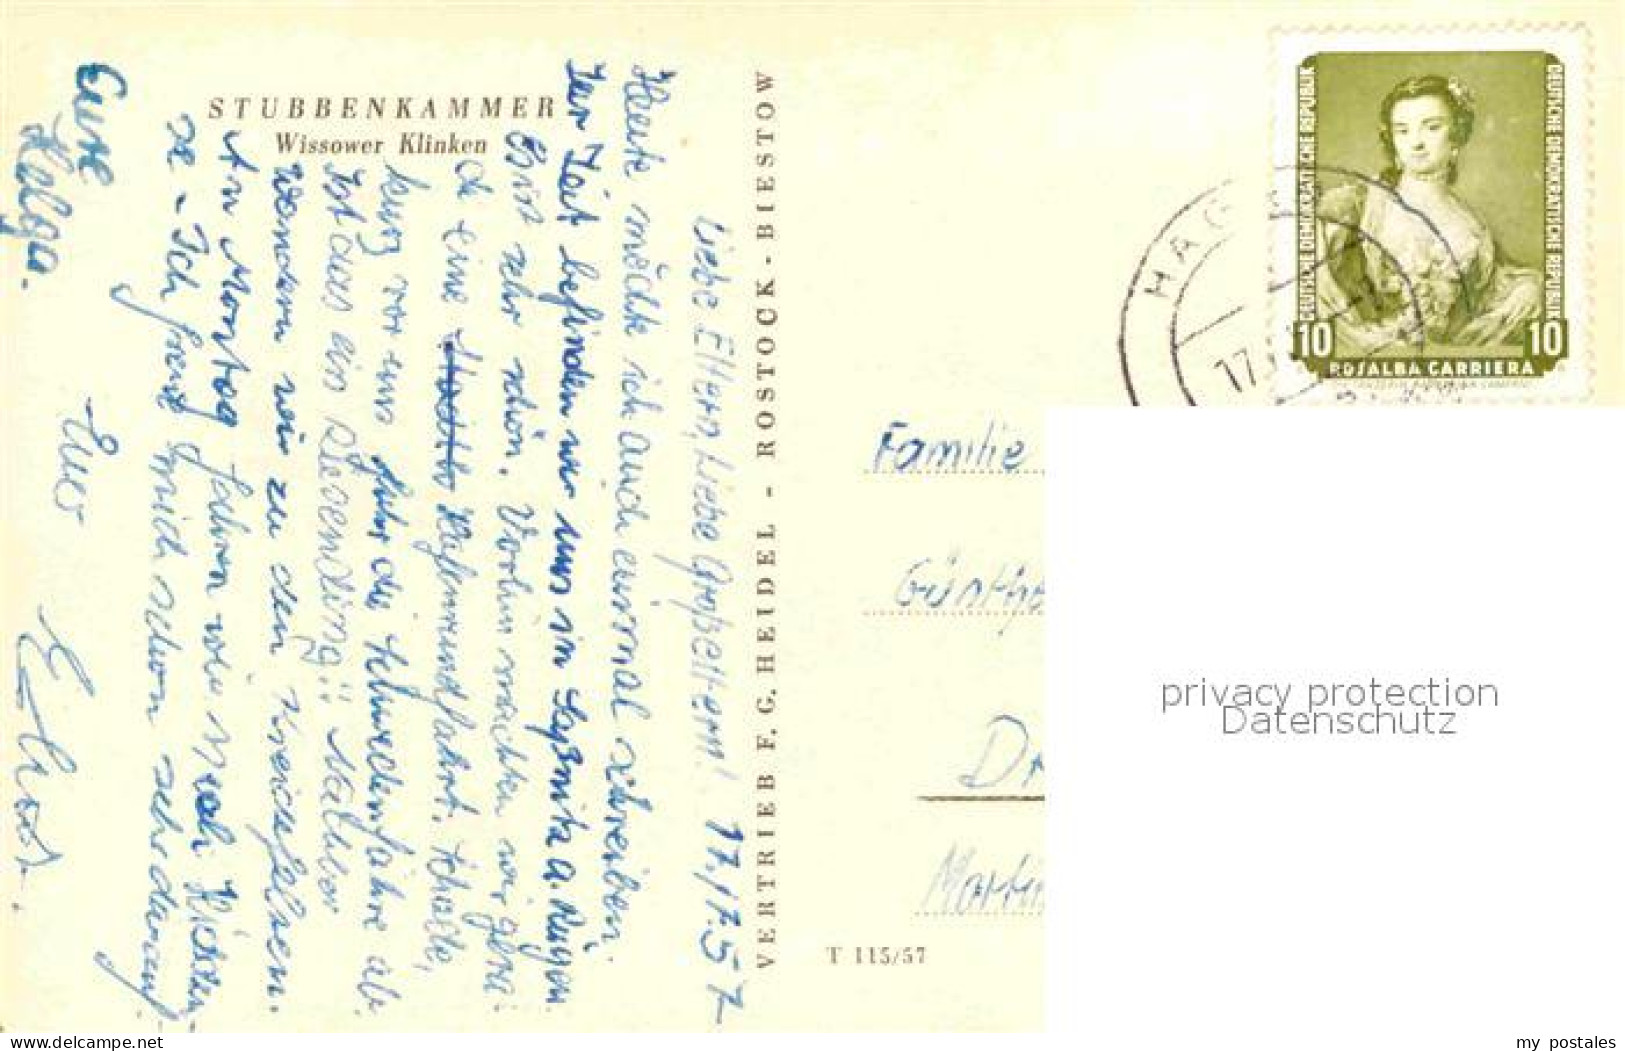 STUBBENKAMMER
Wissower Klinken
Liebe Eltern, Liebe Großeltern! 17.7.57
Heute möchte ich auch einmal schreiben.
Zur Zeit befinden wir uns in Saßnitz a. Rügen
Es ist sehr schön. Vorhin machten wir gera-
de eine Hafenrundfahrt. Schade,
kurz vor uns fuhr die Schwedenfähre ab.
Ist das ein Riesending!! Nachher
wandern wir zu den Kreidefelsen.
Am Montag fahren wir nach
ze - Ich freue mich schon sehr darauf
Eure
Helga.
Euer
VERTRIEB F. G. HEIDEL - ROSTOCK - BIESTOW
T 115/57
DEUTSCHE DEMOKRATISCHE REPUBLIK
DEUTSCHE DEMOKRATISCHE REPUBLIK
10
10
ROSALBA CARRIERA
HAG
17.
Familie
Günthe
Dr
Martin
privacy protection
Datenschutz
www.delcampe.net
my_postales